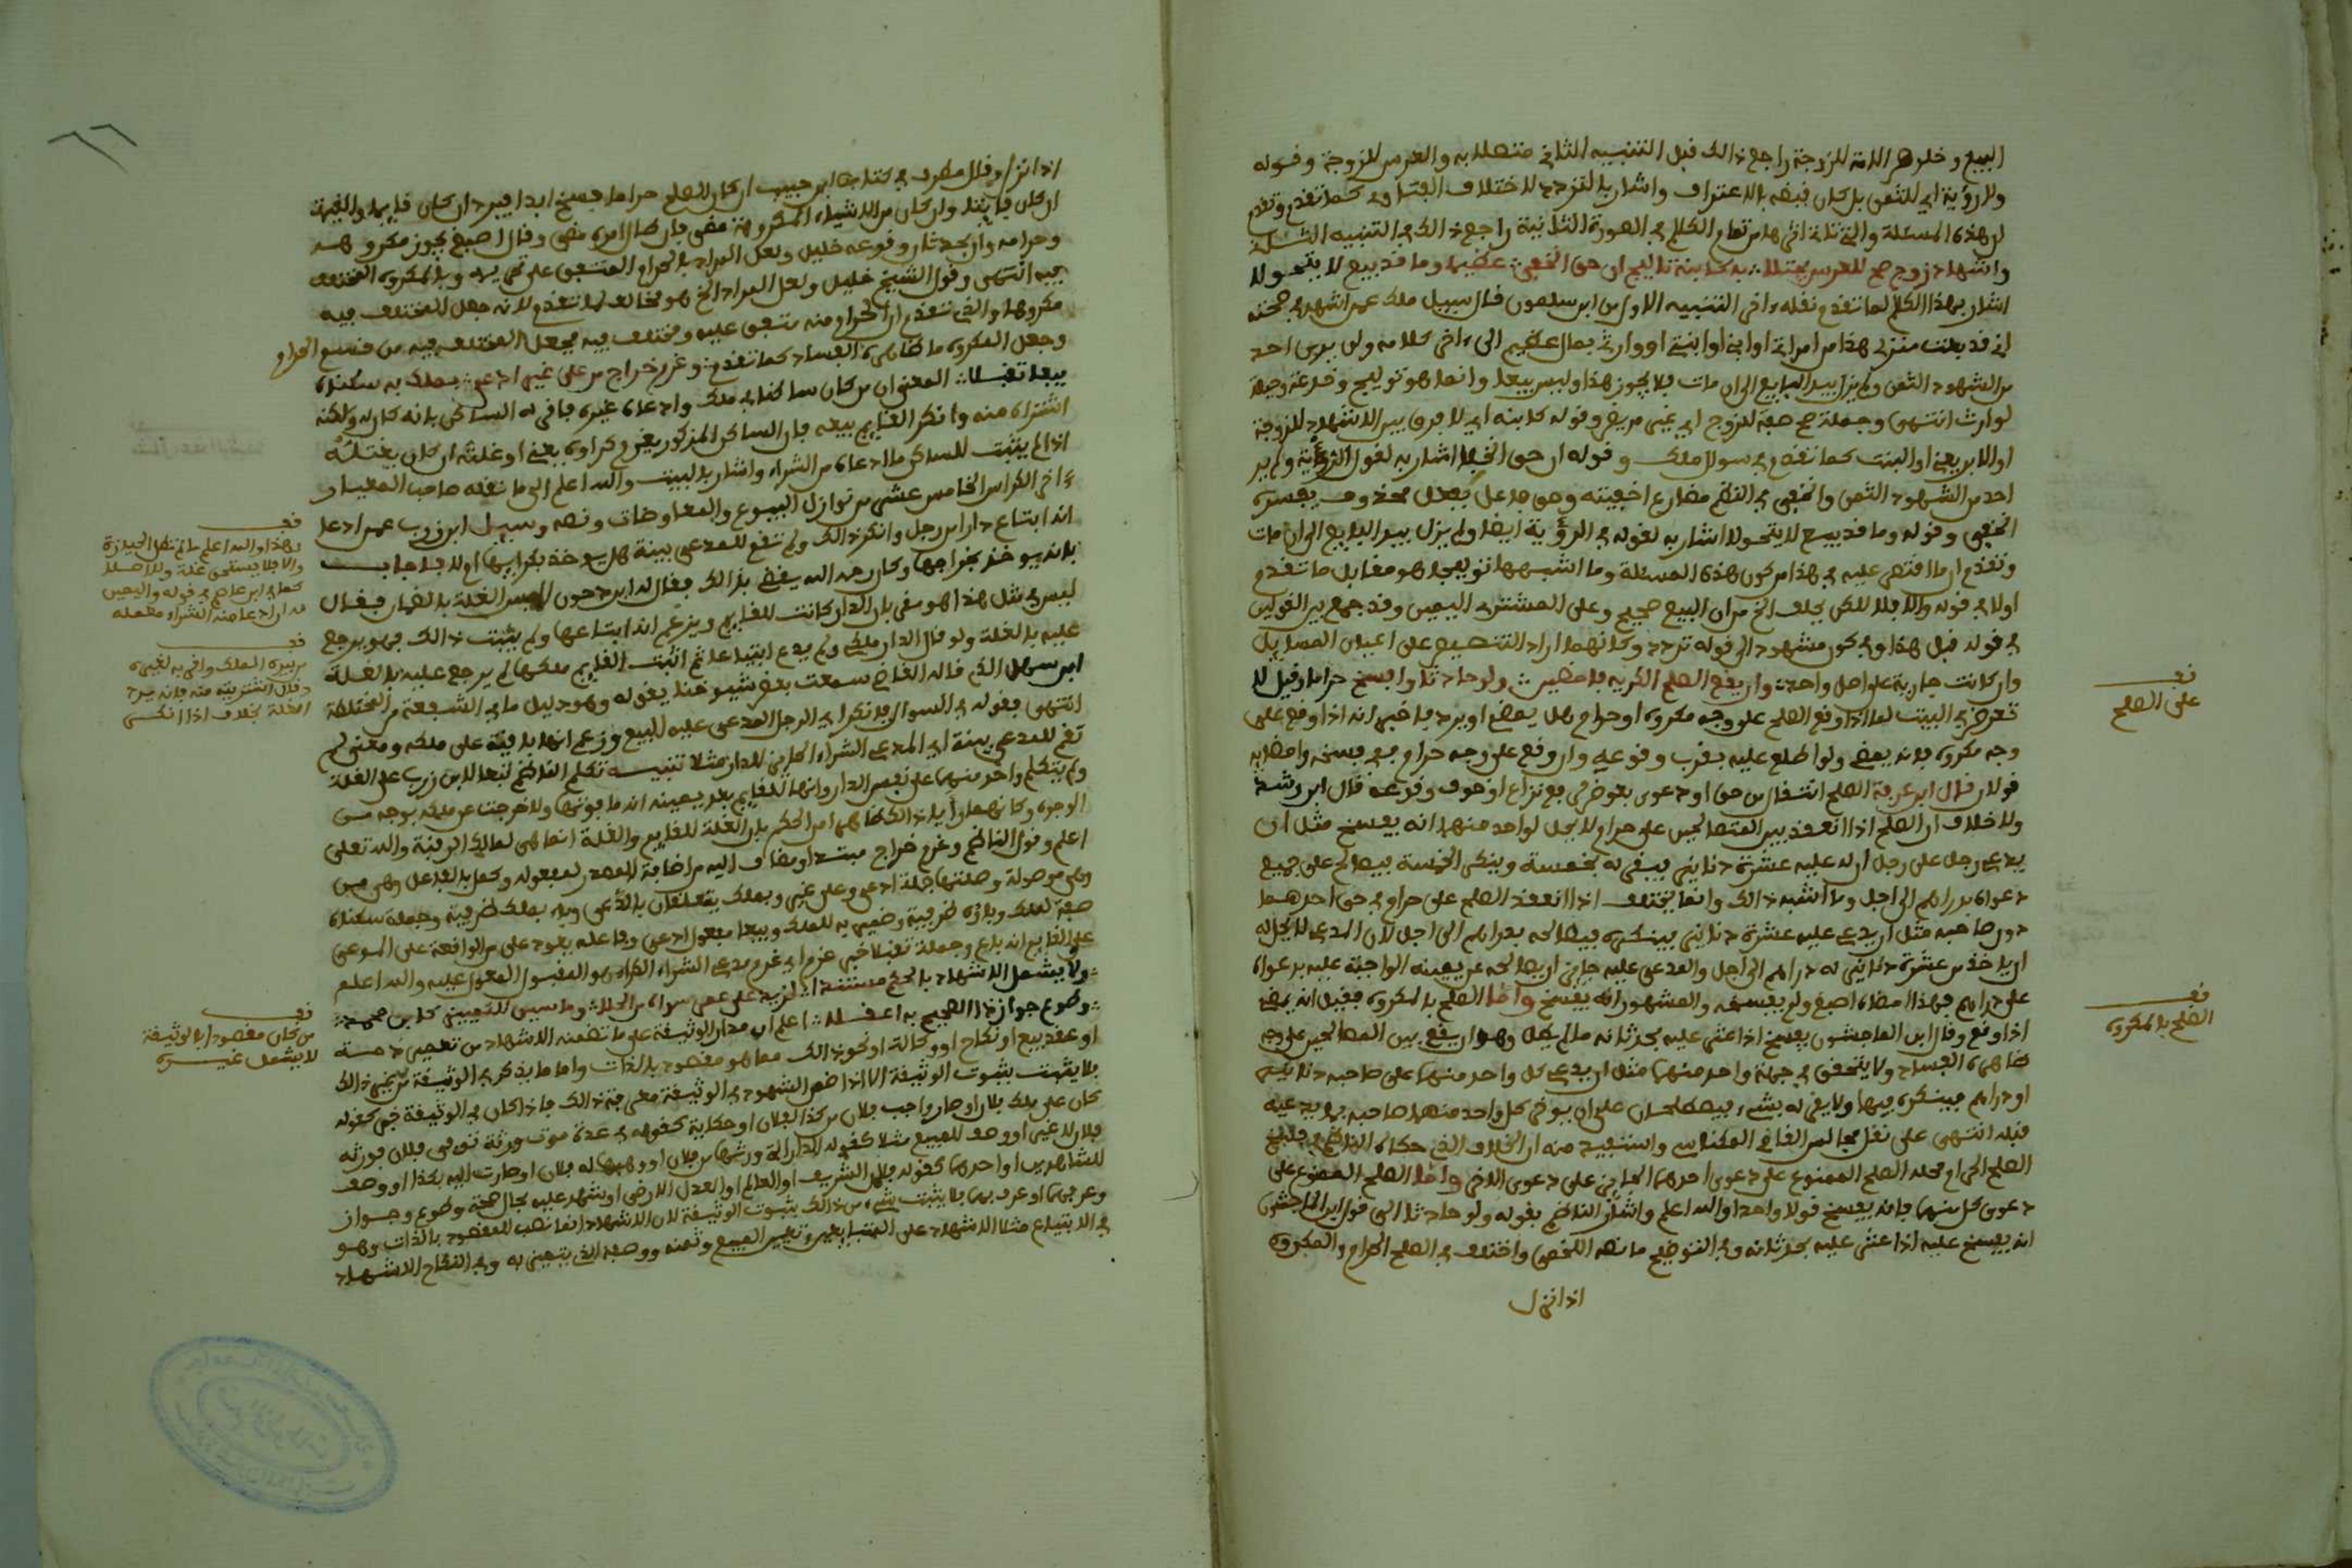 البيع وخلوها الامة للزوجة راجع ذالك قبل التنبيه الثاني متصلا به والعرس للزوجة وقوله
ولا رؤية اي للثمن بل كان قبضه بالاعتراف واشار بالتردد لاختلاف الفتاوي كما تقدم وتقدم
ان هذه المسئلة والتي تاتي اثرها من تمام الكلام في الصورة الثانية راجع ذالك في التنبيه
واشهاد زوج صح للعرس بـ كابنة تاليج ان حق الخفي عكفيها وما قد بيع لا يتحولا
اشار بهذا الكلام لما تقدم نقله ءاخر التنبيه الاول من ابن سلمون قال سييل ملك عمن اشهد في صحته
اني قد بعت منزلي هذا من امراتي او ابني او ابنتي او وارثي بمال عظيم الى ءاخر كلامه ولم ير احد
من الشهود الثمن ولم يزل بيد البايع الى ان مات فلا يجوز هذا وليس بيعا وانما هو توليج وخدعة ووصية
لوارث انتهى وجملة صح صفة للزوج اي غير مريض وقوله كابنه اي لا فرق بين الاشهاد للزوجة
او الابن يعني او البنت كما تقدم في سوال ملك وقوله ان حق الخفا اشار به لقول الرواية ولم ير
احد من الشهود الثمن والخفي في النظم مضارع اخفيته وحق فاعل بفعل محذوف يفسره
الخفي وقوله وما قد بيع لا يتحولا اشار به لقوله في الرؤية ايضا ولم يزل بيد البايع الى ان مات
وتقدم ان ما اقتصر عليه في هذا من كون هذه المسئلة وما اشبهها توليجا هو مقابل ما تقدم
اولا في قوله والا فلا لكن يحلف الخ من ان البيع صحيح وعلى المشتري اليمين وقد جمع بين القولين
في قوله قبل هذا وفي كون مشهود الى قوله تردد وكانهما اراد التنصيص على اعيان المسايل
وان كانت جارية على اصل واحد وان يقع الصلح الكريه فامضين ولو حادثا وافسخ حراما وقيل لا
تعرض في البيت لما اذا وقع الصلح على وجه مكروه او حرام هل يمضي او يرد فاخبر انه اذا وقع على
وجه مكروه فانه يمضي ولو اطلع عليه بقرب وقوعه وان وقع على وجه حرام ففي فسخه وامضايه
قولان قال ابن عرفة الصلح انتقال من حق او دعوى بعوض لرفع نزاع او خوف وقوعه قال ابن رشد
ولا خلاف ان الصلح اذا انعقد بين المتصالحين على حرام لا يحل لواحد منهما انه يفسخ مثل ان
يدعي رجل على رجل ان له عليه عشرة دنانير فيقر له بخمسة وينكر الخمسة فيصالح على جميع
دعواه بدراهم الى اجل وما اشبه ذالك وانما يختلف اذا انعقد الصلح على حرام في حق احدهما
دون صاحبه مثل ان يدعي عليه عشرة دنانير فينكره فيصالحه بدراهم الى اجل لان المدعي لا يحل له
ان ياخذ من عشرة دنانير له دراهم الى اجل والمدعى عليه جايز ان يصالحه عن يمينه الواجبة عليه بدعواه
على دراهم فهذا امضاه اصبغ ولم يفسخه والمشهور انه يفسخ واما الصلح بالمكروه فقيل انه يمضي
اذا وقع وقال ابن الماجشون يفسخ اذا عثر عليه بحدثانه ما لم يطل وهو ان يقع بين المصالحين على وجه
ظاهره الفساد ولا يتحقق في جهة واحد منهما مثل ان يدعي كل واحد منهما على صاحبه دنانير
او دراهم فينكره فيها ولا يقر له بشيء فيصطلحان على ان يوخر كل واحد منهما صاحبه بما يدعيه
قبله انتهى على نقل مجالس القاضي المكناسي واستفيد منه ان الخلاف الذي حكاه الناظم في فسخ
الصلح الحرام محله الصلح الممنوع على دعوى احدهما الجايز على دعوى الاخر واما الصلح الممنوع على
دعوى كل منهما فانه يفسخ قولا واحدا والله اعلم واشار الناظم بقوله ولو حادثا الى قول ابن الماجشون
انه يفسخ عليه اذا عثر عليه بحدثانه وفي التوضيح ما نصه اللخمي واختلف في الصلح الحرام والمكروه
اذا نزل
قف
على الصلح
قف
الصلح بالمكروه
اذا نزل وقال مطرف في كتاب ابن حبيب ان كان الصلح حراما فسخ ابدا فيرد ان كان قايما والقيمة
ان كان فايتا وان كان من الاشياء المكروهة مضى فان طال امره مضى وقال اصبغ يجوز مكروهه
وحرامه وان بحدثان وقوعه خليل ولعل المراد بالحرام المتفق على تحريمه وبالمكروه المختلف
فيه انتهى وقول الشيخ خليل ولعل المراد الخ هو مخالف لما تقدم لانه جعل المختلف فيه
مكروها والذي تقدم ان الحرام منه متفق عليه ومختلف فيه فجعل المختلف فيه من قسم الحرام
وجعل المكروه ما ظاهره الفساد كما تقدم وغرم خراج من على غير ادعى بملك به سكناه
بيعا تقبلا المعنى ان من كان ساكنا في ملك وادعاه غيره فاقر له الساكن بانه كان له ولكنه
اشتراه منه وانكر القايم بيعه فان الساكن المذكور يغرم كراءه يعني او غلته ان كان يغتله
اذا لم يثبت للساكن ما ادعاه من الشراء واشار بالبيت والله اعلم الى ما نقله صاحب المعيار
ءاخر الكراس الخامس عشر من نوازل البيوع والمعاوضات ونصه وسييل ابن زرب عمن ادعا
انه ابتاع دارا من رجل وانكر ذالك ولم تقع للمدعي بينة هل يوخذ بكرايها ام لا فاجاب
بانه يوخذ بخراجها وكان رحمه الله يقضي بذالك فقال له ابن دحون اليس الغلة بالضمان فقال
ليس في مثل هذا هو مقر بان الدار كانت للقايم ويزعم انه ابتاعها ولم يثبت ذالك فهو يرجع
عليه بالغلة ولو قال الدار ملكي ولم يدع ابتياعا ثم اثبت القايم ملكها لم يرجع عليه بالغلة
ابن سهل الذي قاله القاضي سمعت بعض شيوخنا يقوله وهو دليل ما في الشفعة من المختلطة
انتهى فقوله في السوال فانكر اي الرجل المدعى عليه البيع وزعم انها باقية على ملكه ومعنى لم
تقم للمدعي بينة اي المدعي الشراء الحايز للدار مثلا تنبيه تكلم الناظم تبعا لابن زرب على الغلة
ولم يتكلم واحد منهما على نفس الدار وانها للقايم بعد يمينه انه ما فوتها ولا خرجت عن ملكه بوجه من
الوجوه وكانهما رايا ذالك ظاهرا من الحكم بان الغلة للقايم والغلة انما هي لمالك الرقبة والله تعلى
اعلم وقول الناظم وغرم خراج مبتدا ومضاف اليه من اضافة المصدر لمفعوله وكمل بالفاعل وهي من
وهي موصولة وصلتها جملة ادعى وعلى غير وبملك يتعلقان بادعى وباء بملك ظرفية وجملة سكناه
صفة لملك وباؤه ظرفية وضمير به للملك وبيعا مفعول ادعى وفاعله يعود على من الواقعة على المدعي
على القايم انه باع وجملة تقبلا خبر غرم اي غرم مدعي الشراء الكراء هو المقبول المعول عليه والله اعلم
ولا يشمل الاشهاد بالحق مسندا لزيد على عمر سواه من الحلا وما سيق للتعيين كابن صحة
وطوع جواز ذا الصحيح به اعقلا اعلم ان مدار الوثيقة على ما تضمنه الاشهاد من تعمير ذمة
او عقد بيع او نكاح او وكالة او نحو ذالك مما هو مقصود بالذات واما ما يذكر في الوثيقة من غير ذالك
فلا يثبت بثبوت الوثيقة الا اذا ضمن الشهود في الوثيقة معرفة ذالك فاذا كان في الوثيقة خبر كقوله
كان على ملك فلان او صار واجب فلان من كذا لفلان او حكاية كقولهم في عدة موت ورثة توفي فلان فورثه
فلان لا غير او وصف للمبيع مثلا كقوله الدار التي ورثها من فلان او وهبها له فلان او صارت اليه بكذا او وصف
للشاهدين او احدهما كقوله فلان الشريف او العالم او العدل الارضى او شهد عليه بحال صحة وطوع وجواز
وعرفهما او عرف بهما فلا يثبت شيء من ذالك بثبوت الوثيقة لان الاشهاد انما نصب للمقصود بالذات وهو
في الابتياع مثلا الاشهاد على المتبايعين وتعيين المبيع وثمنه ووصفه الذي يتعين به وفي النكاح الاشهاد
قف
هذا والله اعلم ما لم تطل الحيازة
والا فلا يستحق غلة ولا اصلا
كما في ابن عاصم في قوله واليمين
له ان ادعا منه الشراء معمله
قف
من بيده الملك واقر به لغيره
وقال اشتريته منه فانه يرد
الغلة بخلاف اذا انكر
قف
من كان مقصودا بالوثيقة
لا يشمل غيره